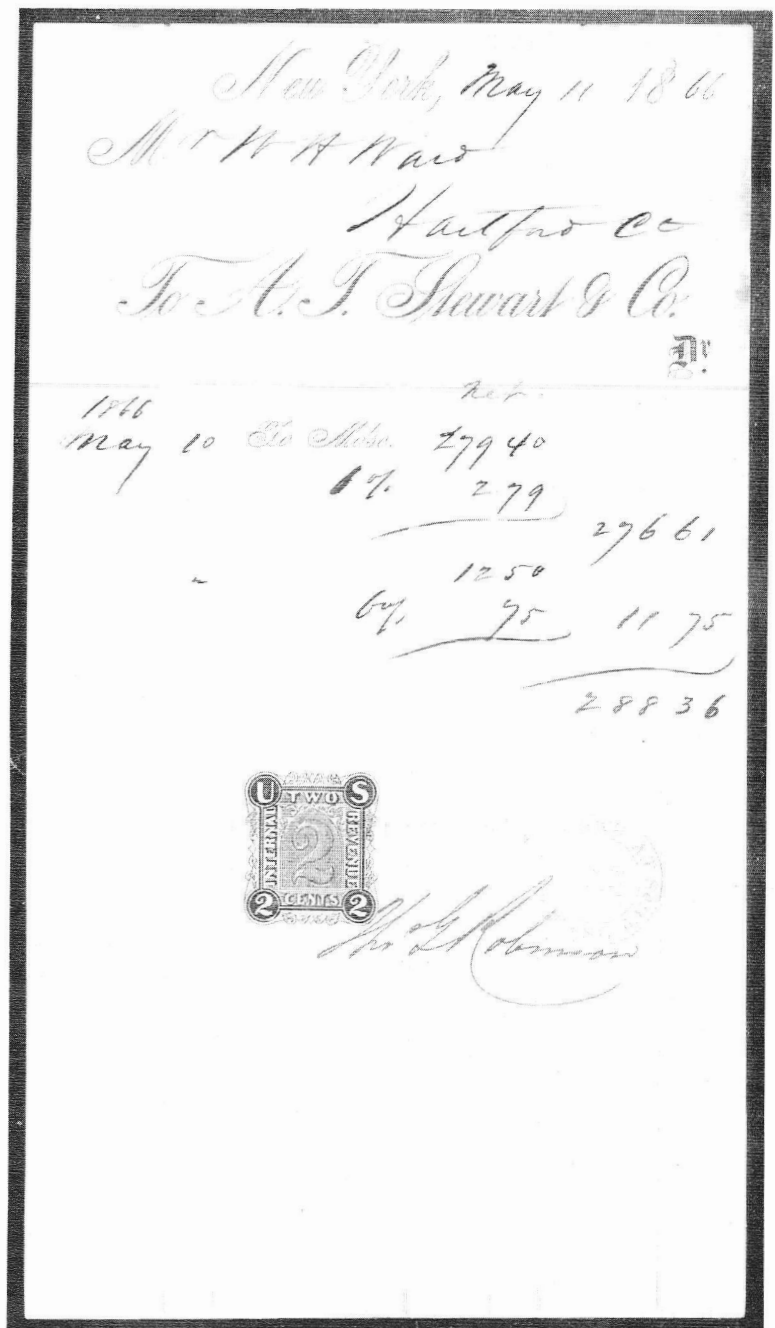 New York, May 11 1866
Mr W H Ward
Hartford Ct
To A. T. Stewart & Co.
Dr.
Net.
1866
May 10 To Mdse. 279 40
1 % 2 79
276 61
" 12 50
6% 75 11 75
288 36
U TWO S
INTERNAL 2 REVENUE
2 CENTS 2
Robinson